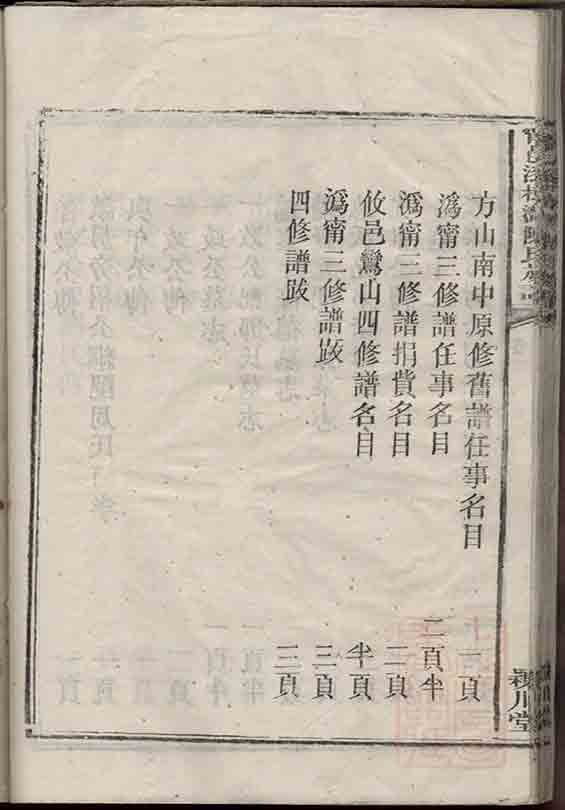 方山南中原修舊譜任事名目　一頁
潙甯三修譜任事名目　二頁半
潙甯三修譜捐費名目　二頁
攸邑鸞山四修譜名目　半頁
潙甯三修譜跋　三頁
四修譜跋　三頁
潁川堂